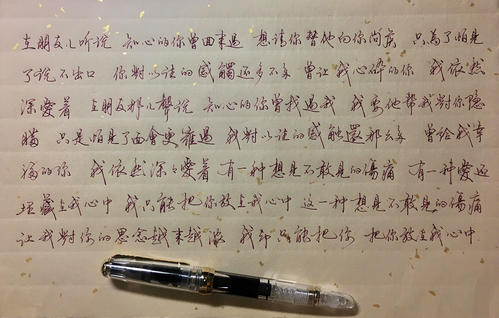 在朋友儿听说 知心的你曾回来过 想请你替他向你问候 只为了怕见
了说不出口 你對以往的感觸还多不多 曾让我心碎的你 我依然
深爱着 在朋友那儿聲说 知心的你曾找过我 我要他帮我對你隐
瞒 只是怕見了面會更難過 我對以往的感触還那么多 曾给我幸
福的你 我依然深深爱着 有一种想見不敢見的傷痛 有一种爱还
埋藏在我心中 我只能把你放在我心中 这一种想見不敢見的傷痛
让我對你的思念越来越濃 我却只能把你 把你放在我心中